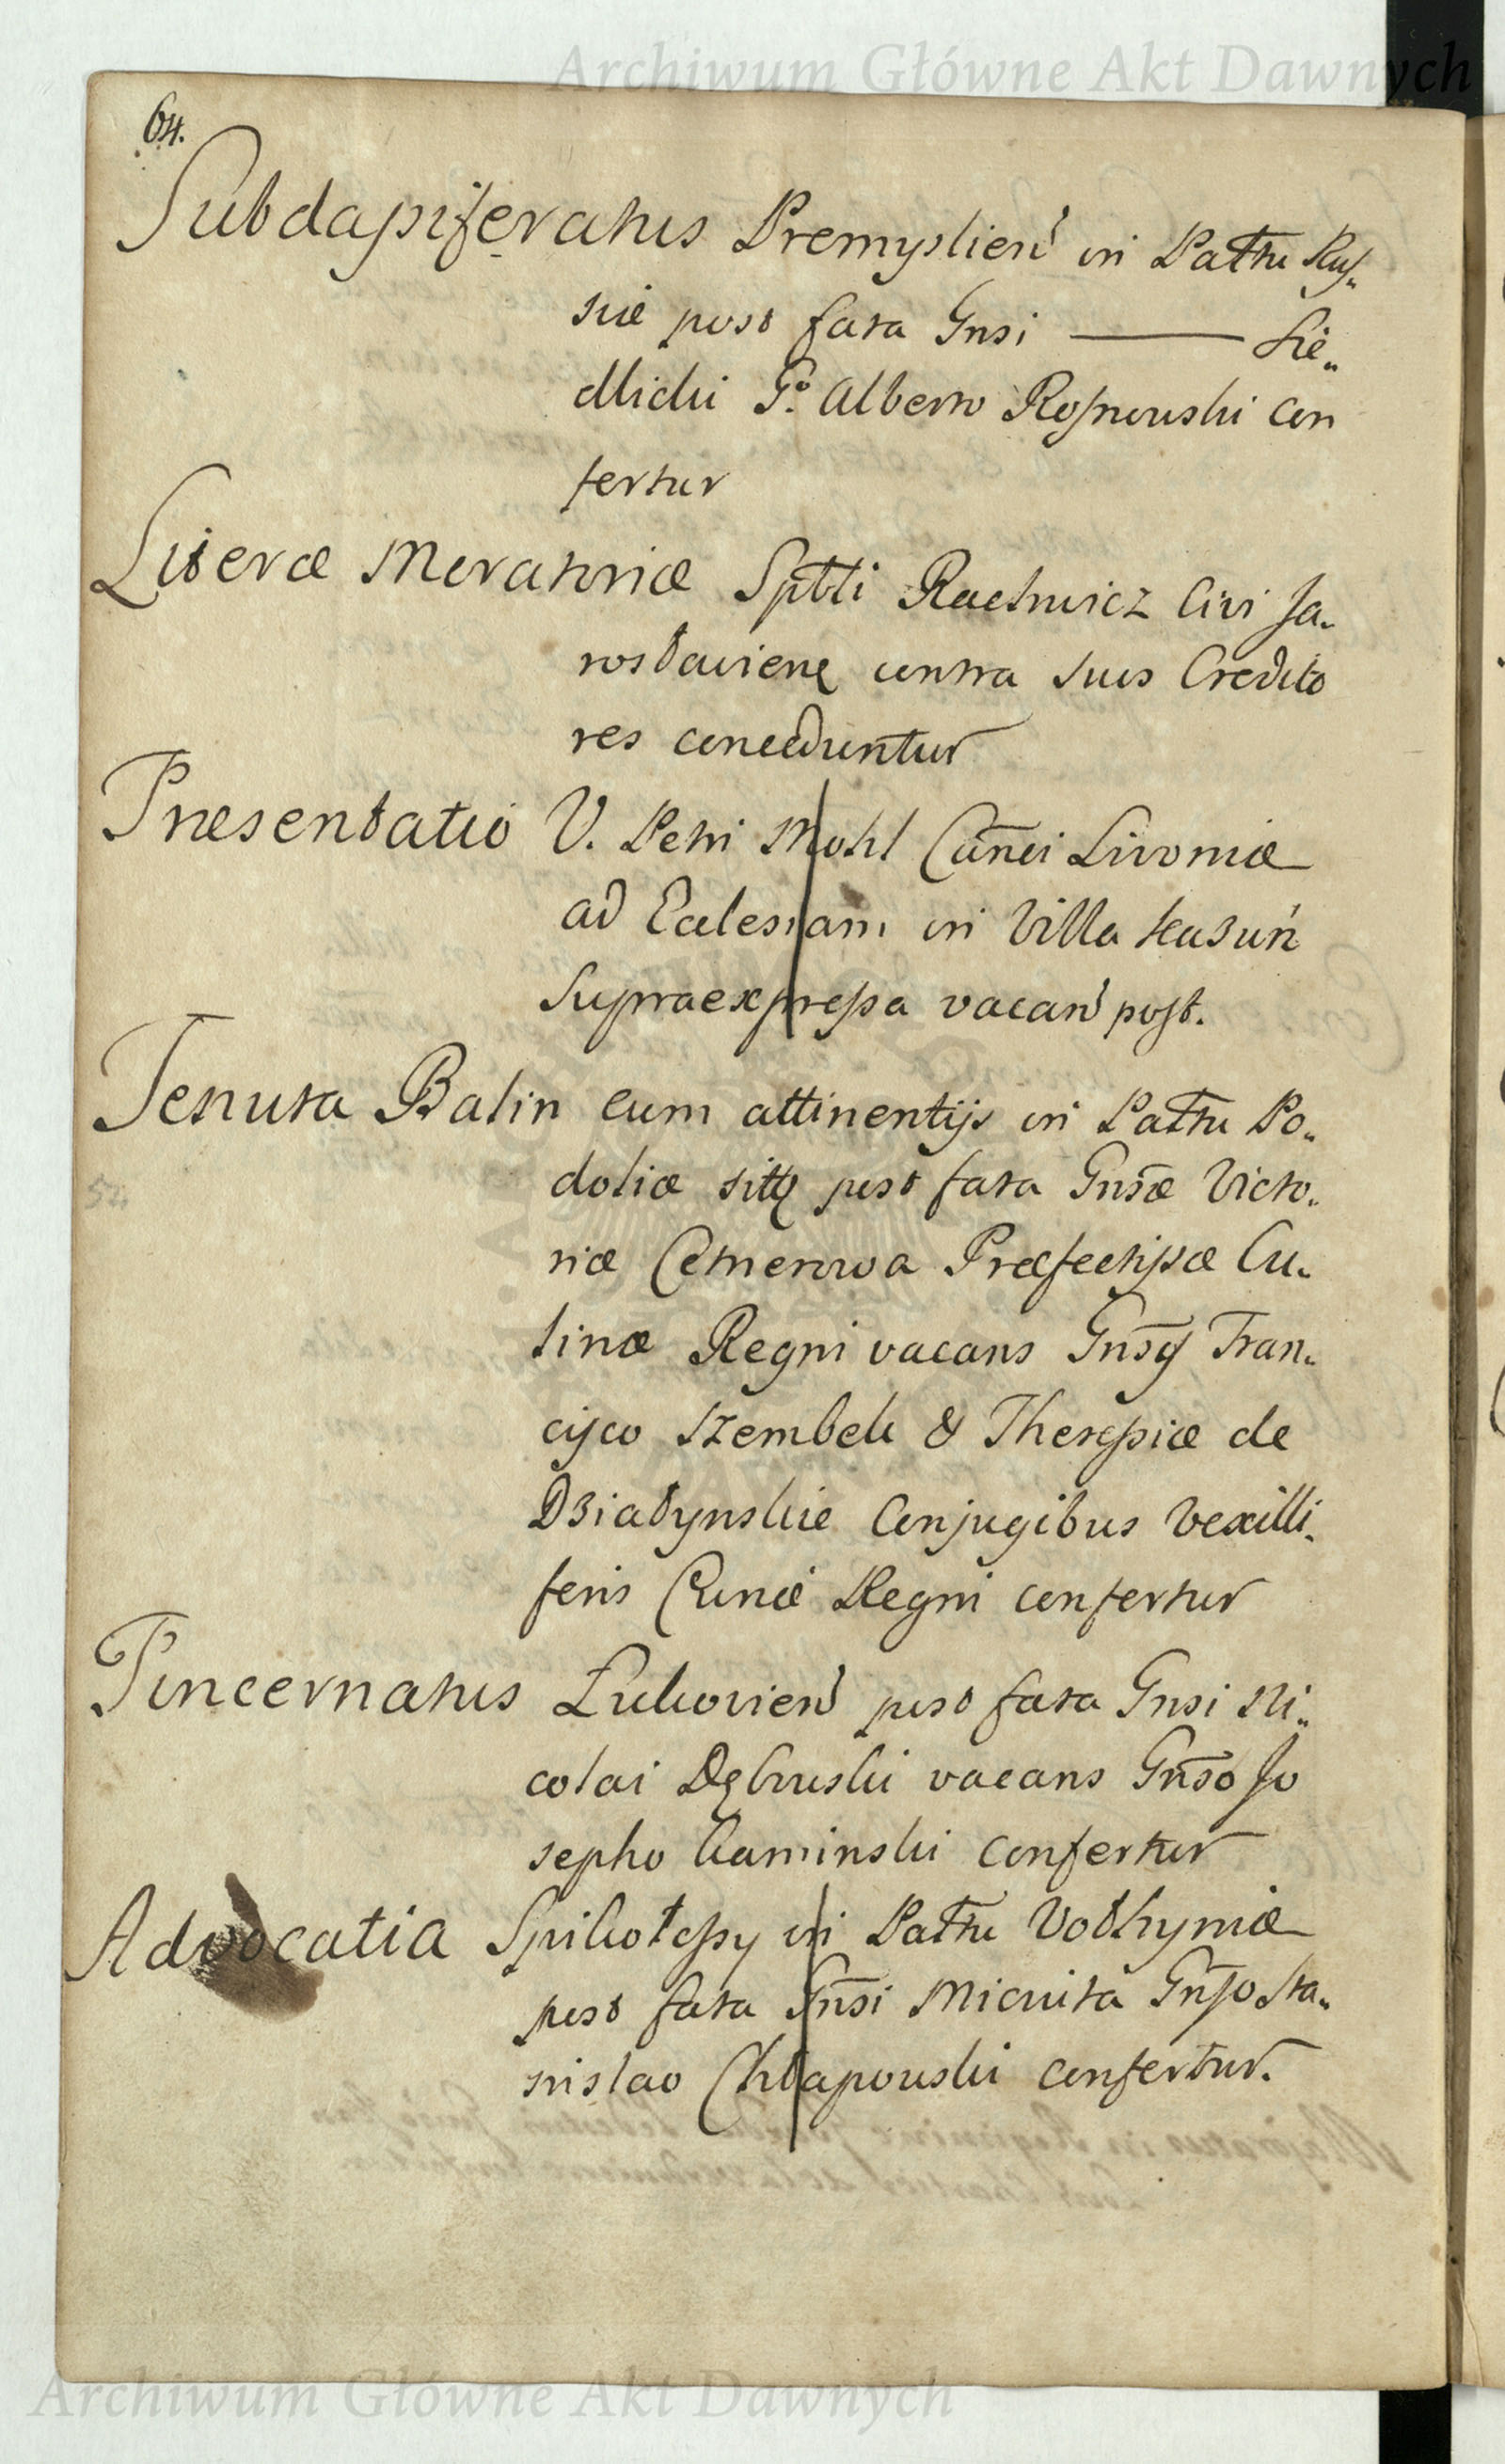 Archiwum Główne Akt Dawnych
64.
Subdapiferatus Premyslień in Pattu Rus„
siæ post fata Gnsi ——— Sie„
dlicki Go. Alberto Rosnowski con
fertur
Literæ Moratoriæ Sptti Rachwicz Civi Ja„
rosłavienę contra suos Credito
res conceduntur
Præsentatio V. Petri Mohl Canci Livoniæ
ad Ecclesiam in Villa
Supraexpressa vacań post.
Tenuta Balin cum attinentijs in Pattu Po„
doliæ sitę post fata Gnsæ Victo„
riæ Cetnerowa Præfectissæ Cu„
linæ Regni vacans Gnsq Fran„
cisco Szembek & Theressiæ de
Działynskie Conjugibus Vexilli„
feris Curiæ Regni confertur
Pincernatus Łukovień post fata Gnsi Ni„
colai Dębowski vacans Gnso Jo
sepho Kaminski confertur
Advocatia Spikołossy in Pattu Vołhyniæ
post fata Gnsi Micuita Gnso Sta„
nislao Chłapowski confertur.
Archiwum Główne Akt Dawnych